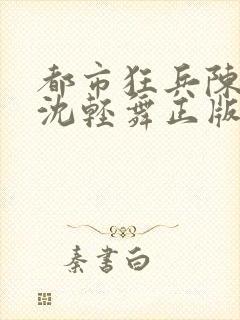 都市狂兵陳
沈輕舞正版
秦書白